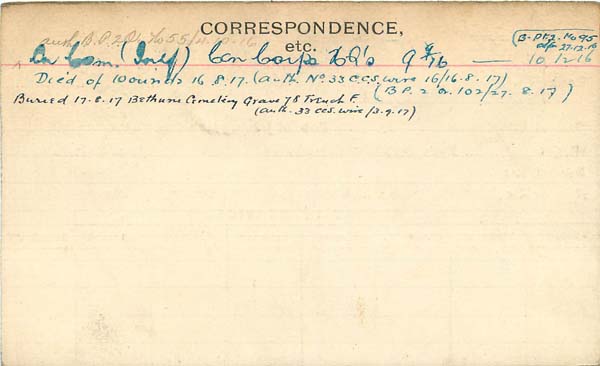 CORRESPONDENCE,
etc.
auth B.P.2. No 55/
(B. Pt 2. No 95
d/o 27.12.16
On Com. (Intel) Can Corps H.Q's 9 16 — 10/2/16
Died of Wounds 16.8.17. (auth. No 33 C.C.S. wire 16/16.8.17)
(B P. 2 O. 102/27.8.17)
Buried 17.8.17 Bethune Cemetery Grave 78 Trench F.
(auth. 33 CCS. wire/3.9.17)